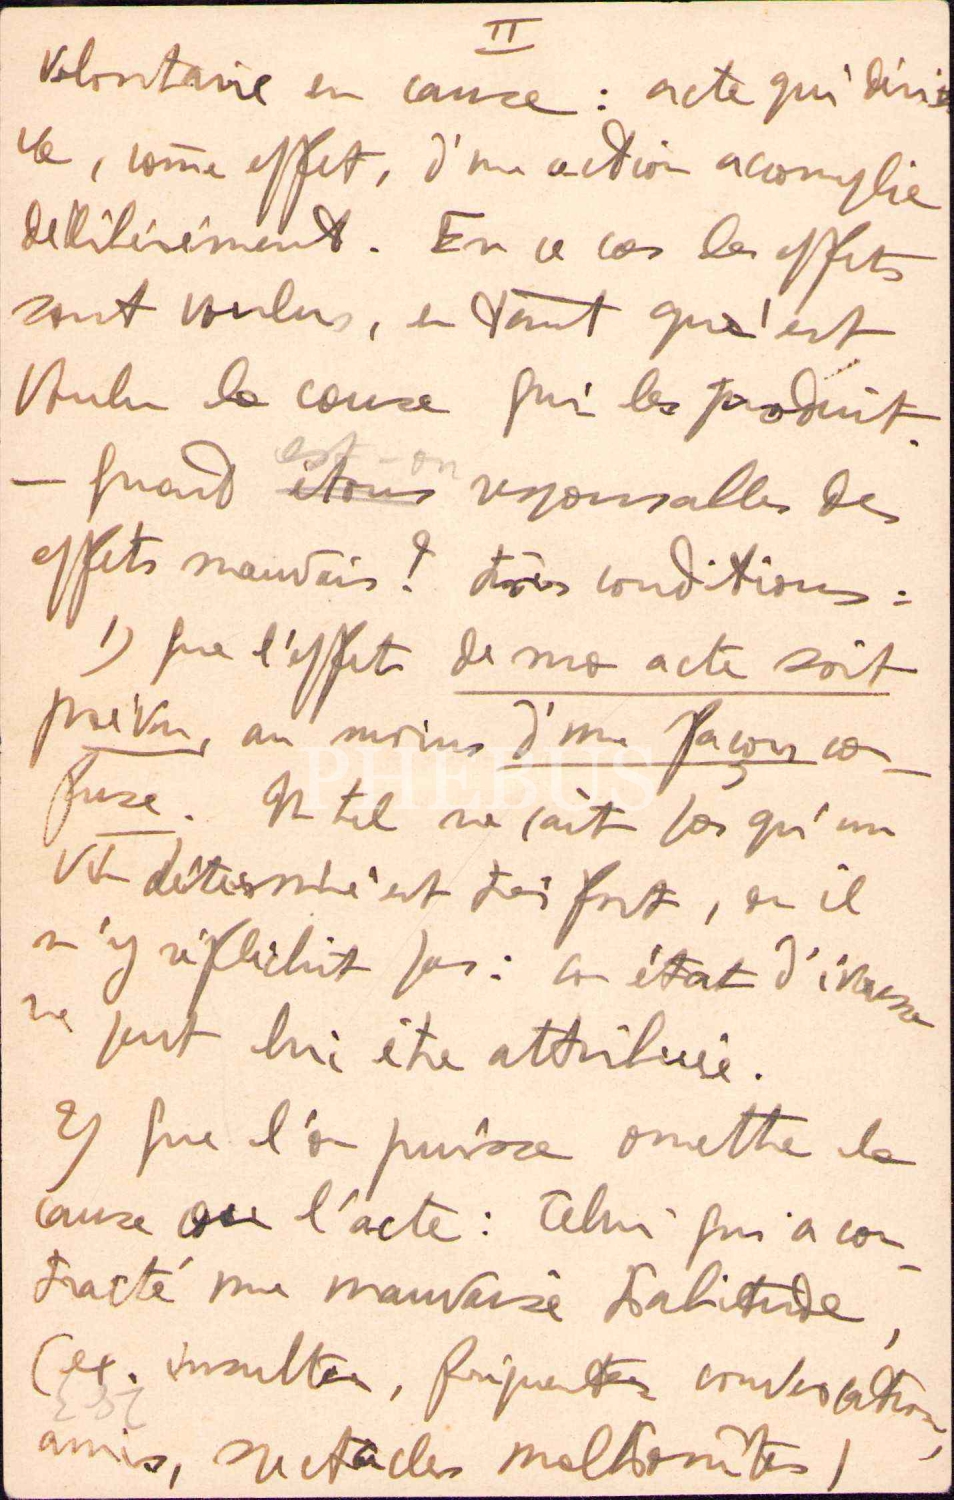 II
volontaire en cause : acte qui déri
ve, come effet, d'une action acomplie
délibérément. En ce cas les effets
sont voulus, en tant qu'est
voulu la cause qui les produit.
– Quand est-on responsables des
effets mauvais? trois conditions :
1) Que l'effet de mo acte soit
prévu, au moins d'une façon con-
fuse. Un tel ne sait pas qu'un
vin déterminé est très fort, on il
n'y réfléchit pas : son état d'ivresse
ne peut lui être attribué.
2) Que l'on puisse omettre la
cause ou l'acte : Celui qui a con-
tracté une mauvaise habitude,
(ex. insulter, fréquenter conversations,
amis, spectacles malhonêtes)
PHEBUS